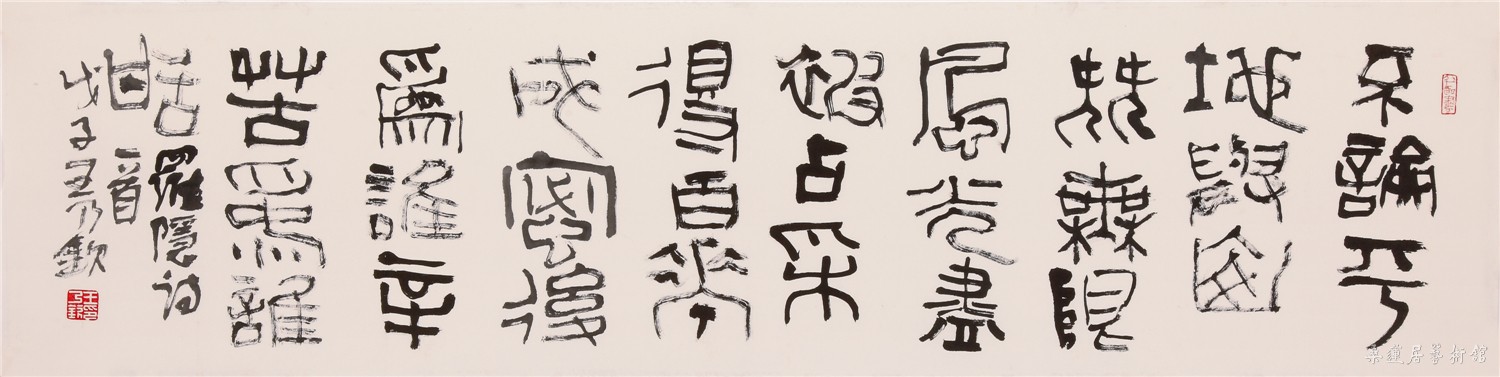 不論平
地與山
尖無限
風光盡
被占采
得百花
成蜜後
爲誰辛
苦爲誰
甜羅隱詩
一首
戊子王乃欽
桑蓮居藝術館